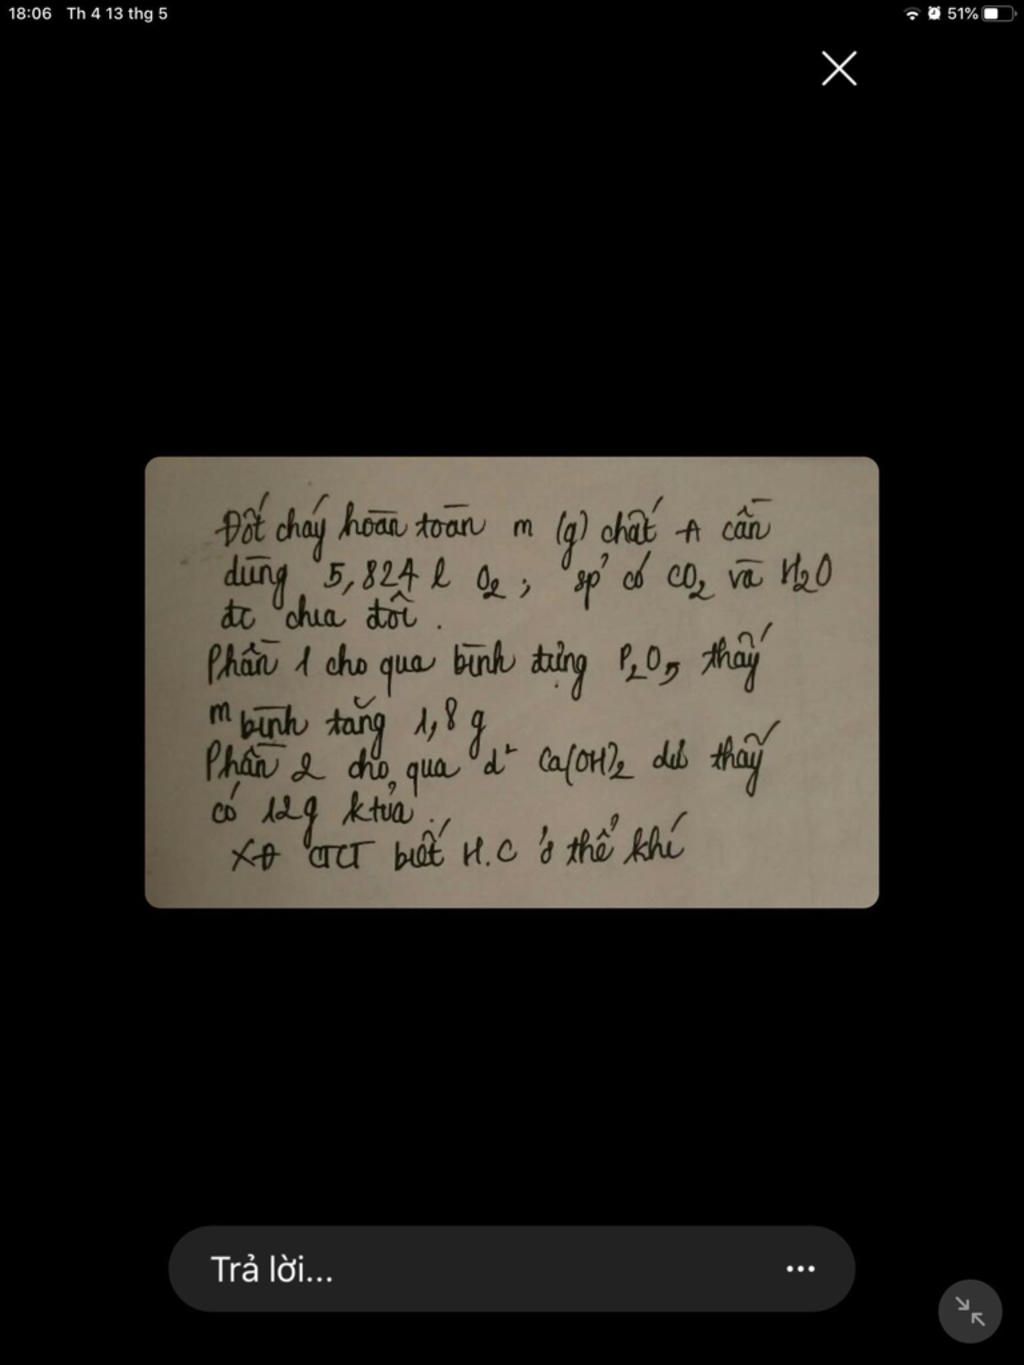 18:06 Th 4 13 thg 5
51%
Đốt cháy hoàn toàn m (g) chất A cần
dùng 5,824 l O2 ; sp' có CO2 và H2O
đc chia đôi .
Phần 1 cho qua bình đựng P2O5 thấy
m bình tăng 1,8 g
Phần 2 cho qua d² Ca(OH)2 dư thấy
có 12g ktủa .
XĐ CTCT biết H.C ở thể khí
Trả lời...